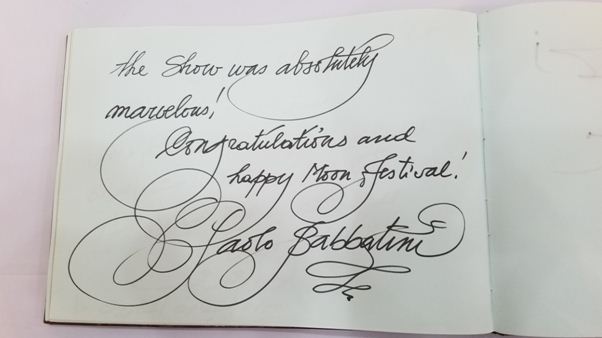 the Show was absolutely
marvelous!
Congratulations and
happy Moon festival!
Paolo Babbatini